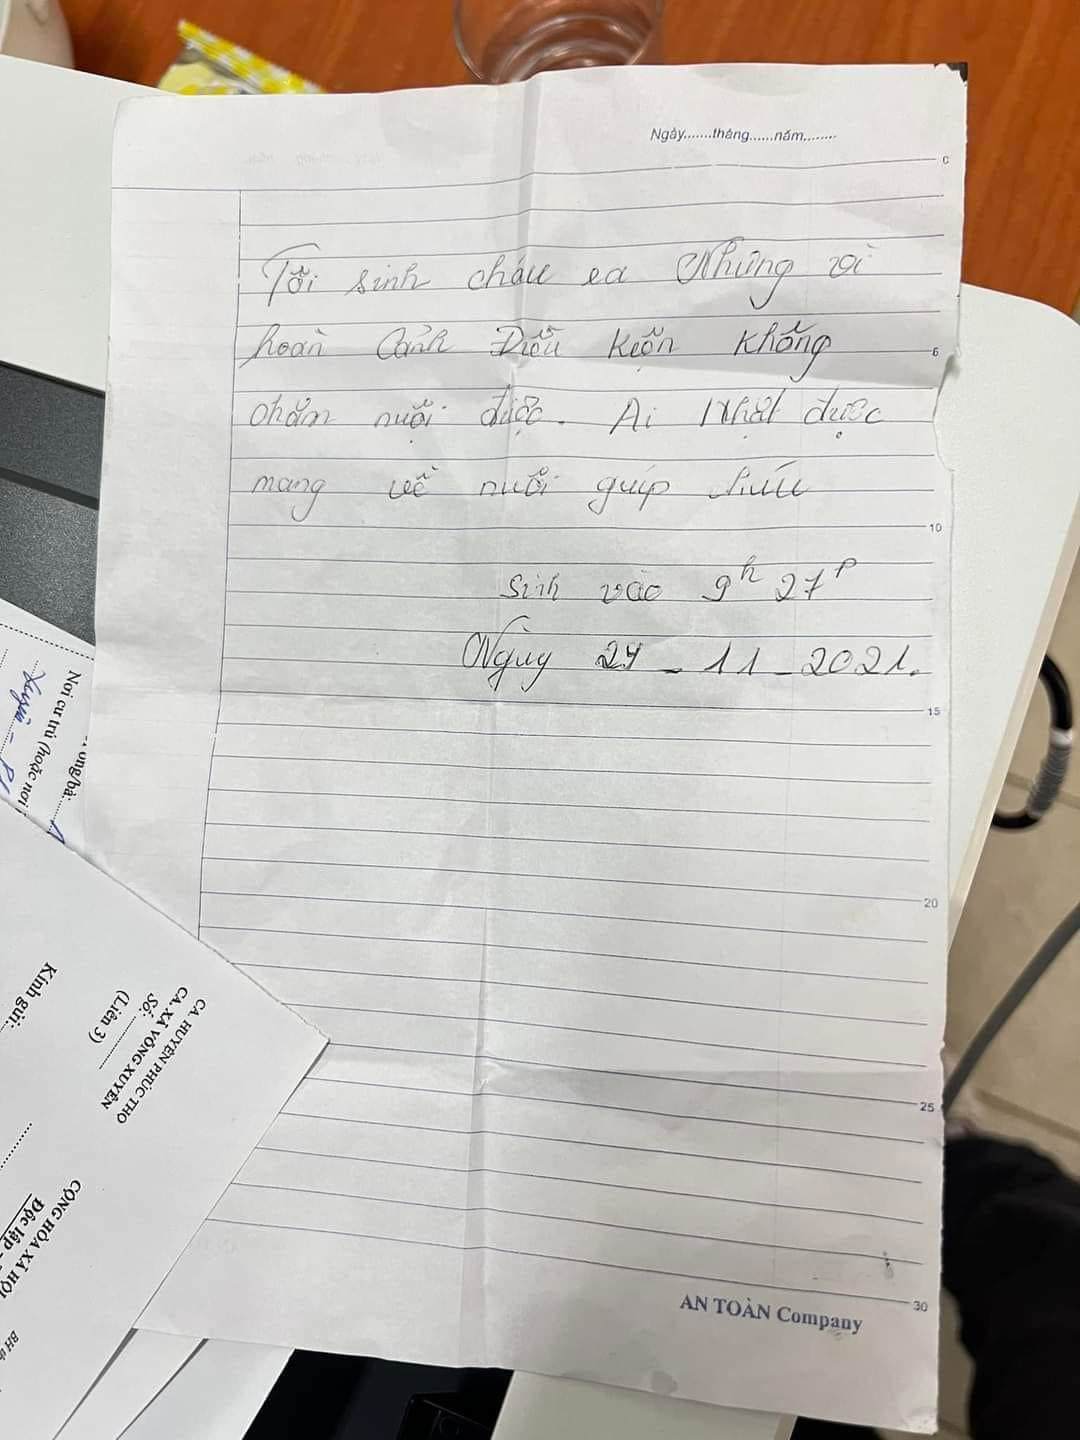 Ngày.......tháng......năm........
0
Tôi sinh cháu ra Nhưng vì
hoàn Cảnh Điều kiện không
6
chăm nuôi được. Ai Nhặt được
mang về nuôi giúp cháu
10
Sinh vào 9h 27p
Ngày 24 - 11 - 2021.
15
20
25
30
AN TOÀN Company
ông/bà:
Nơi cư trú (hoặc nơi
Kính gửi:
CA. HUYỆN PHÚC THỌ
CA. XÃ VÕNG XUYÊN
Số:
(Liên 3)
CỘNG HÒA XÃ HỘI
Độc lập -